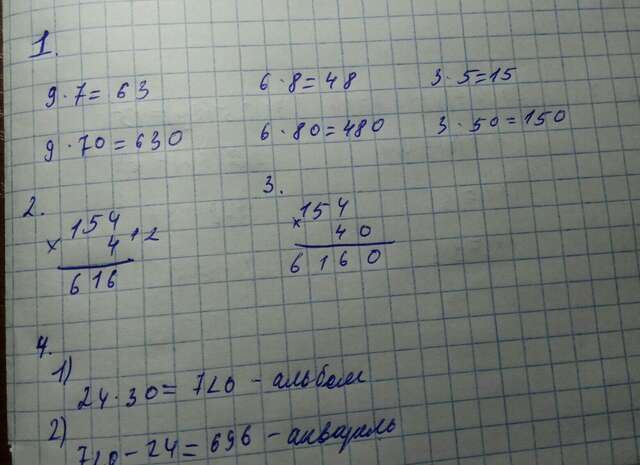 1.
9·7=63 6·8=48 3·5=15
9·70=630 6·80=480 3·50=150
2.
×154
4
616
3.
×154
40
6160
4.
1)
24·30=720 - альбом
2)
720-24=696 - акварель